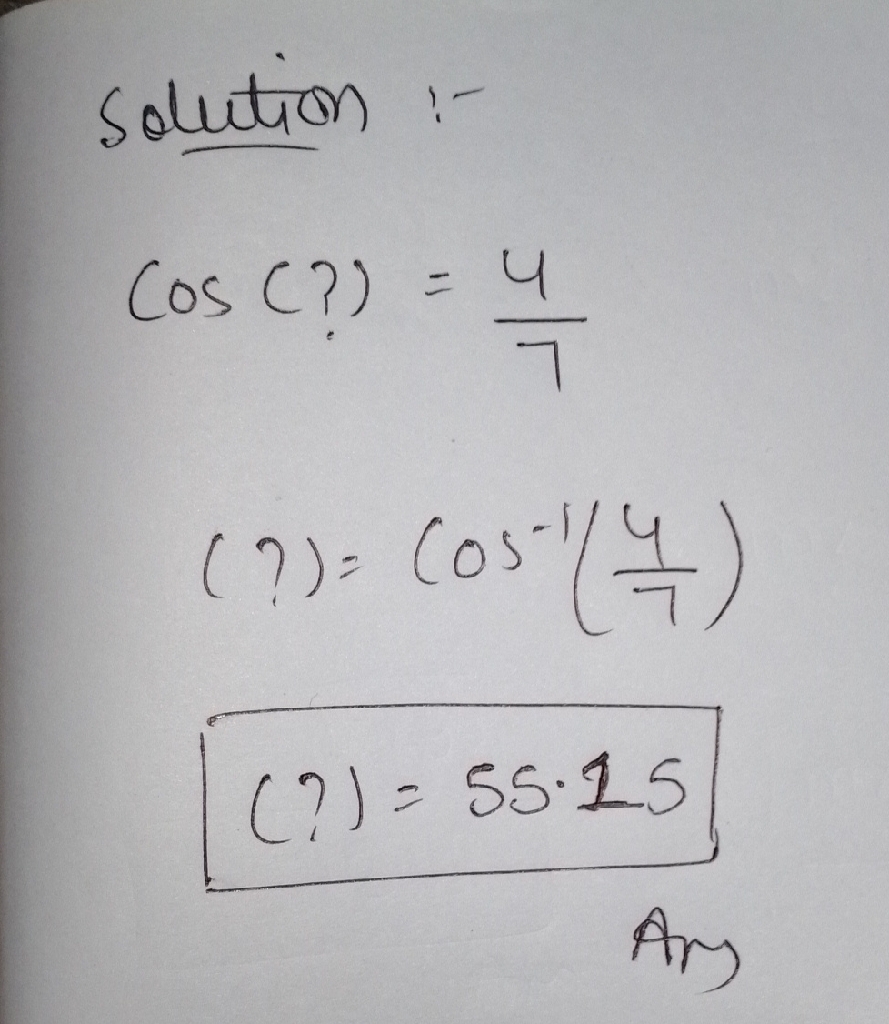 Solution :-
Cos (?) = 4/7
(?) = Cos⁻¹(4/7)
(?) = 55.15
Ans